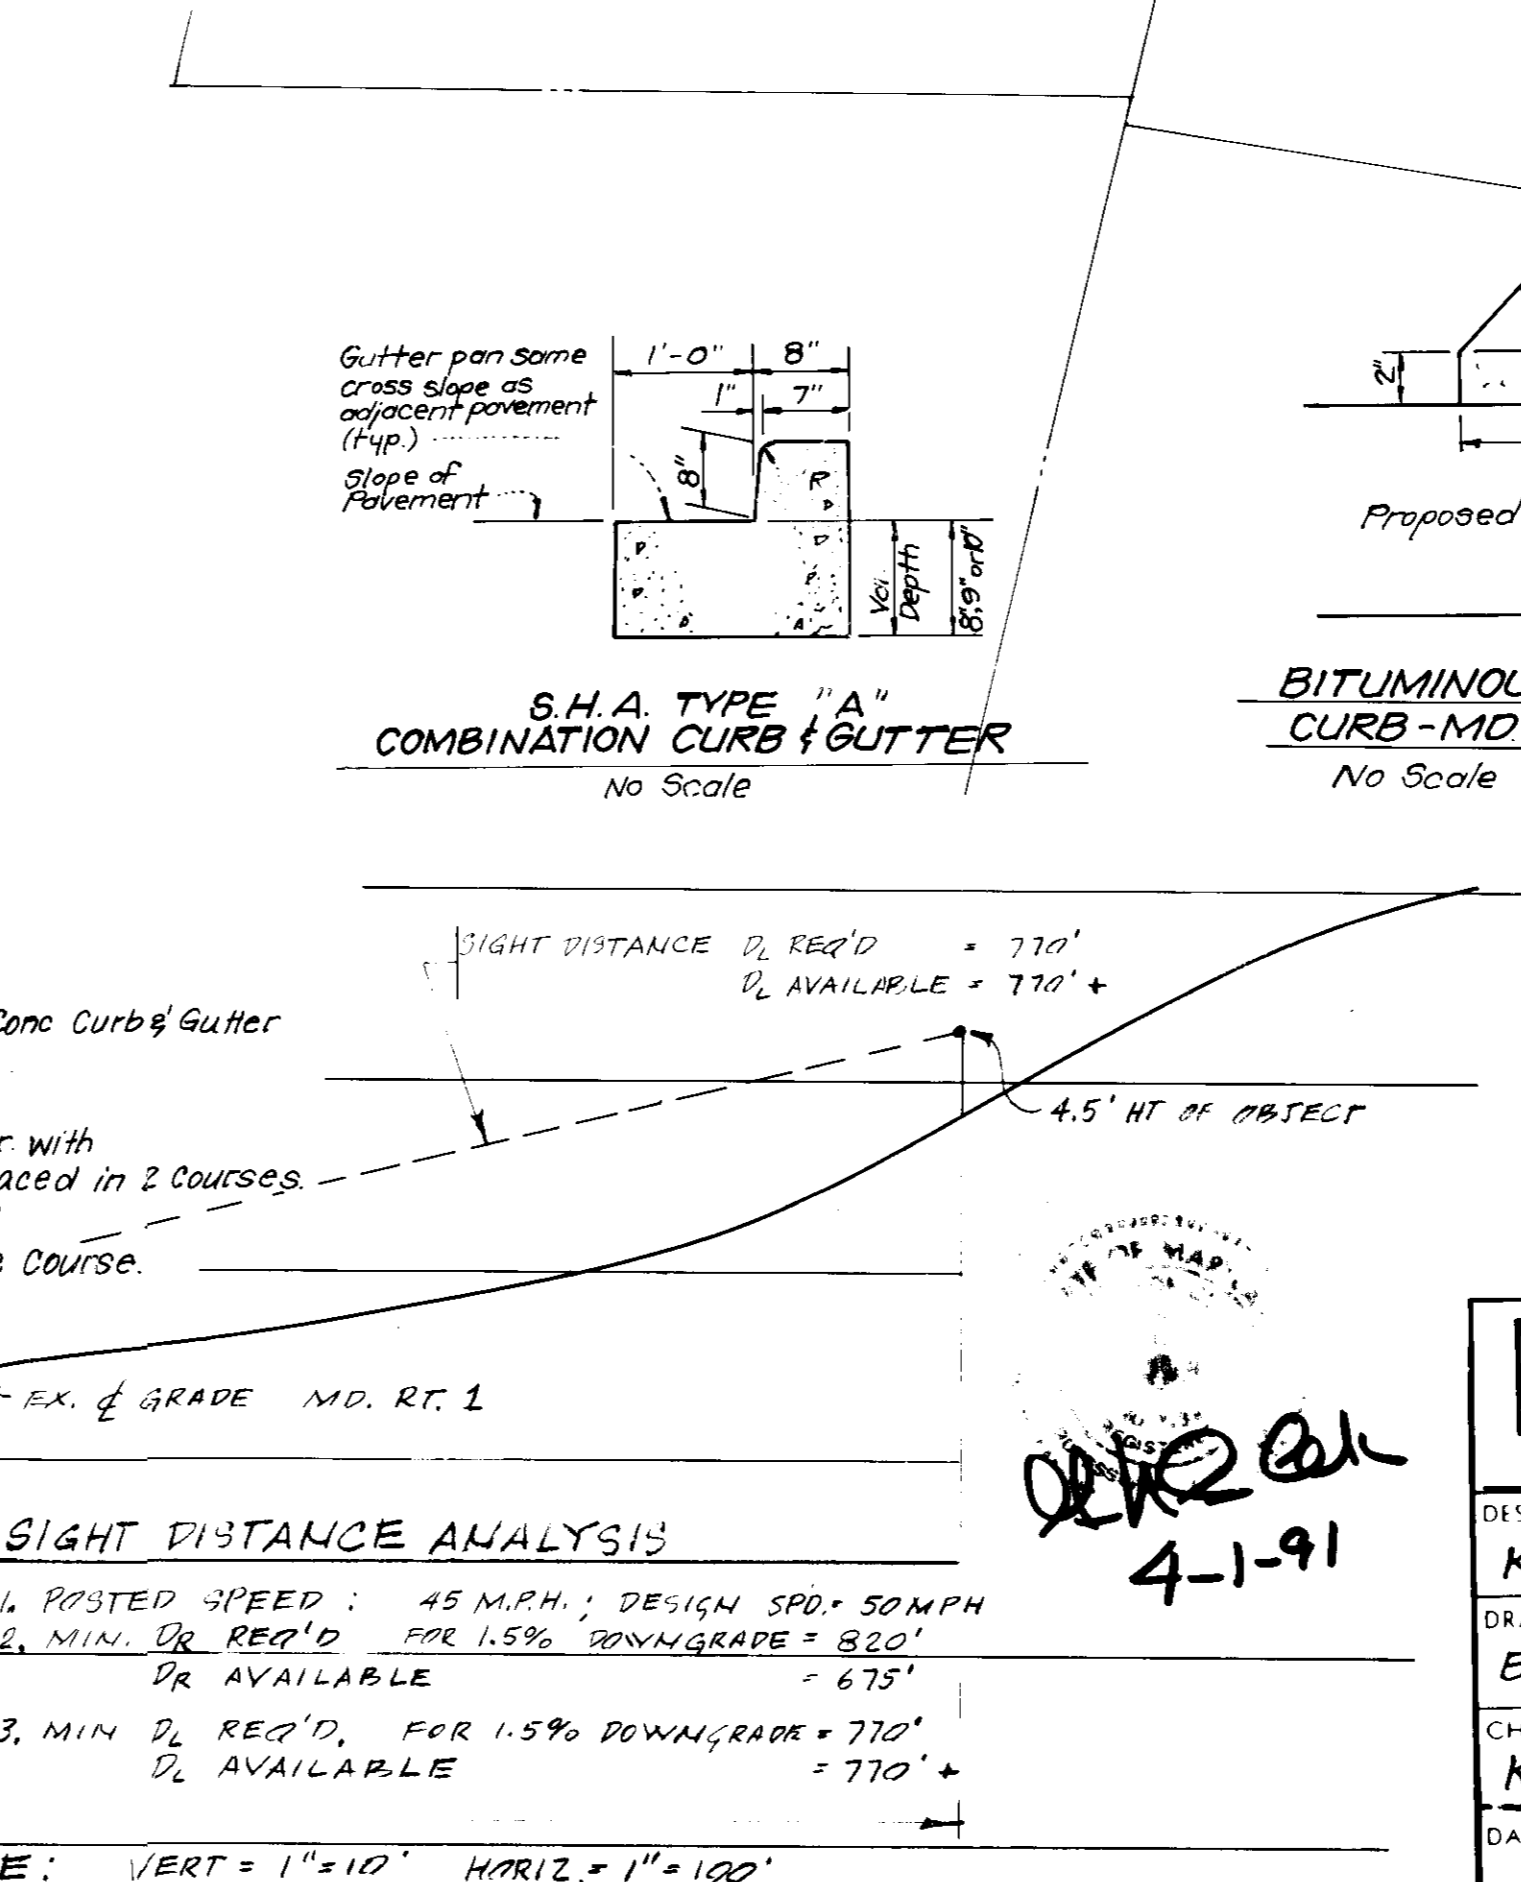 Gutter pan same
cross slope as
adjacent pavement
(typ.)
Slope of
Pavement
1'-0"
8"
1"
7"
8"
R
Depth
8", 9" or 10"
S.H.A. TYPE "A"
COMBINATION CURB & GUTTER
No Scale
2"
Proposed
BITUMINOU
CURB - MD.
No Scale
SIGHT DISTANCE DL REQ'D = 770'
DL AVAILABLE = 770' +
Conc Curb & Gutter
4.5' HT OF OBJECT
r with
aced in 2 Courses.
e Course.
EX. ℄ GRADE MD. RT. 1
OF MAR
SIGHT DISTANCE ANALYSIS
1. POSTED SPEED : 45 M.P.H. ; DESIGN SPD. = 50 MPH
2. MIN. DR REQ'D FOR 1.5% DOWNGRADE = 820'
DR AVAILABLE = 675'
3. MIN DL REQ'D. FOR 1.5% DOWNGRADE = 770'
DL AVAILABLE = 770' +
E: VERT = 1" = 10' HORIZ. = 1" = 100'
4-1-91
DES
K
DRA
E
CH
K
DA